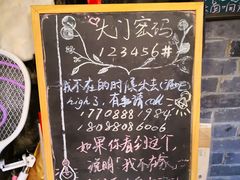 大门密码
123456#
我不在的时候出去(
high了,有事请call
17708881984
18088086006
如果你看到这个,
说明「我不在家」